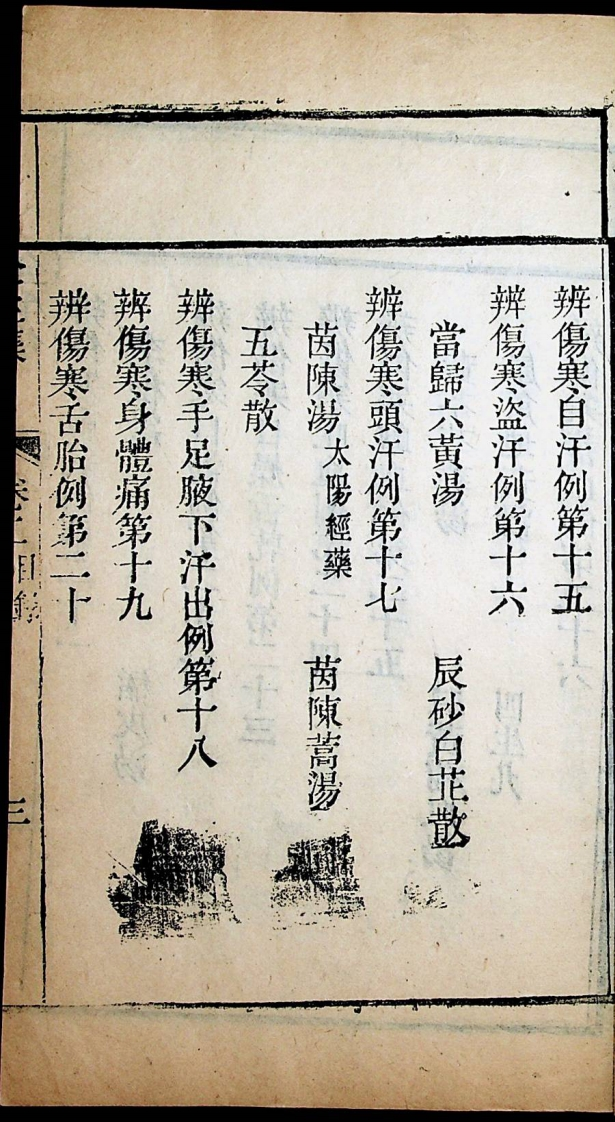 辨傷寒自汗例第十五
辨傷寒盜汗例第十六
當歸六黃湯 辰砂白芷散
辨傷寒頭汗例第十七
茵陳湯 太陽經藥 茵陳蒿湯
五苓散
辨傷寒手足腋下汗出例第十八
辨傷寒身體痛第十九
辨傷寒舌胎例第二十
集 卷二目錄 三